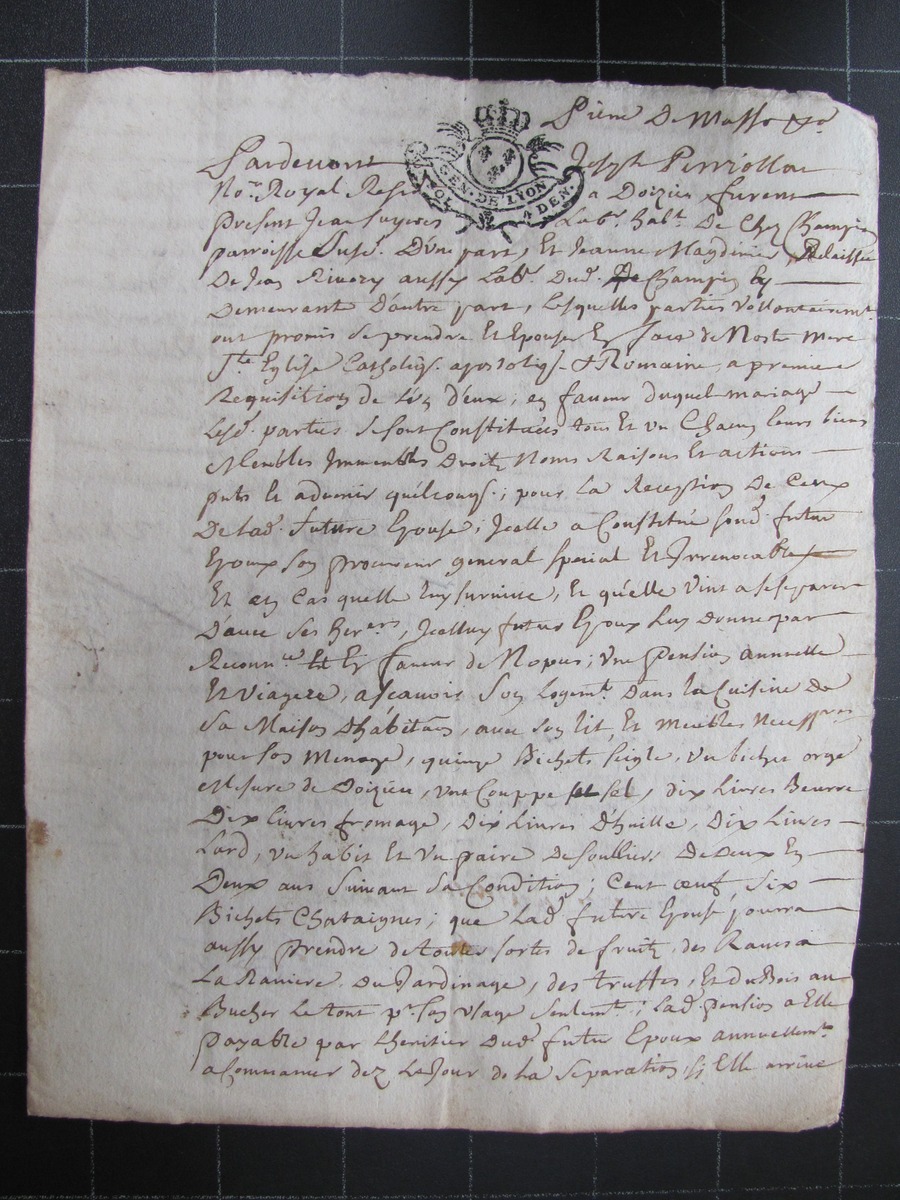 Pierre De Masso
Pardevant Joseph Perriollat
No.re Royal Res.t a Doizieu furent
Present Jean Lab.r hab.t De Chez Champin
parroisse susd. D'une part, Et Jeanne Magdinier Delaissée
De Jean Rivory aussy Lab.r Dud. Champin Ey
Demeurant D'autre part, Lesquelles parties vollontairem.t
ont promis se prendre Et Epouser En face de Nostre Mere
S.te Eglise Catholiq. apostoliq. & Romaine, a premiere
Requisition de L'un d'eux, en faveur duquel mariage
Lesd. parties se sont Constituées tous Et un Chacun leurs biens
Meubles Immeubles Droits Noms Raisons Et actions
p.nts Et advenir quélconqs. ; pour La Reception De Ceux
De Lad. future Epouse, Icelle a Constitué sond. futur
Epoux son procureur general special Et Irrevocable
Et en Cas quelle luy survive, Et qu'elle vint a se separer
D'avec ses her.ers, Icelluy futur Epoux Luy Donne par
Reconn.ce Et En faveur de Nopces, Une pension annuelle
Et Viagere, ascavoir Son Logem.t Dans la Cuisine De
Sa Maison D'habitaon, avec son lit, Et Meubles Necess.res
pour son Menage, quinze Bichets seigle, Un bichet orge
Mesure de Doizieu, une Couppe sel, dix Livres Beurre
Dix Livres fromage, Dix Livres D'huille, Dix Livres
Lard, Un habit Et Un paire De soulliers De Deux En
Deux ans suivant sa Condition ; Cent œufs, six
Bichets Chataignes ; que Lad. future Epouse pourra
aussy prendre de toutes sortes de fruits, des Raves a
La Raviere Du Jardinage, des truffes, Et du Bois au
Bucher Le tout p.r son Usage seulem.t ; Lad. pension a Elle
payable par L'heritier Dud. futur Epoux annuellem.t
a Commancer dez Le Jour de La separation, si Elle arrive
GEN. DE LYON
4 DEN.